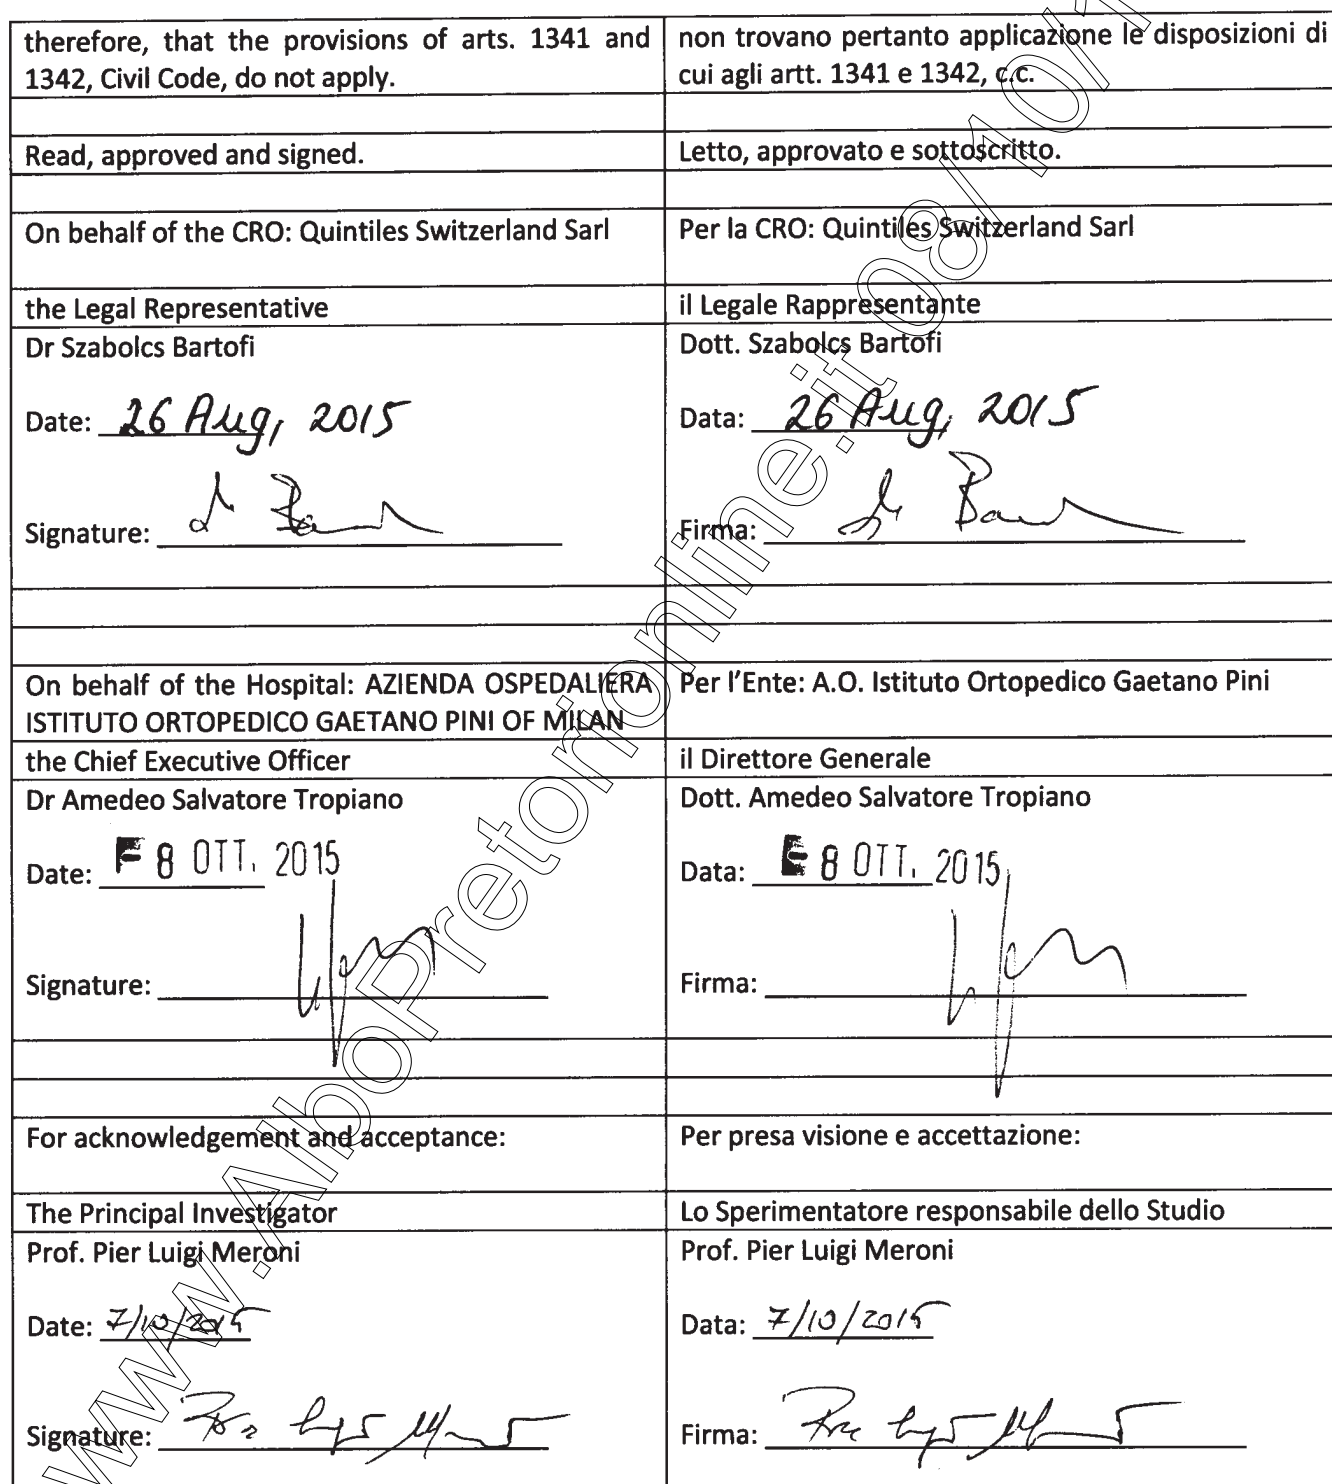 therefore, that the provisions of arts. 1341 and
1342, Civil Code, do not apply.
non trovano pertanto applicazione le disposizioni di
cui agli artt. 1341 e 1342, c.c.
Read, approved and signed.
Letto, approvato e sottoscritto.
On behalf of the CRO: Quintiles Switzerland Sarl
Per la CRO: Quintiles Switzerland Sarl
the Legal Representative
il Legale Rappresentante
Dr Szabolcs Bartofi
Date: 26 Aug, 2015
Signature:
Dott. Szabolcs Bartofi
Data: 26 Aug, 2015
Firma:
On behalf of the Hospital: AZIENDA OSPEDALIERA
ISTITUTO ORTOPEDICO GAETANO PINI OF MILAN
Per l'Ente: A.O. Istituto Ortopedico Gaetano Pini
the Chief Executive Officer
il Direttore Generale
Dr Amedeo Salvatore Tropiano
Date: 8 OTT. 2015
Signature:
Dott. Amedeo Salvatore Tropiano
Data: 8 OTT. 2015
Firma:
For acknowledgement and acceptance:
Per presa visione e accettazione:
The Principal Investigator
Lo Sperimentatore responsabile dello Studio
Prof. Pier Luigi Meroni
Date: 7/10/2015
Signature:
Prof. Pier Luigi Meroni
Data: 7/10/2015
Firma:
www.AlboPretorionline.it 08/10/1